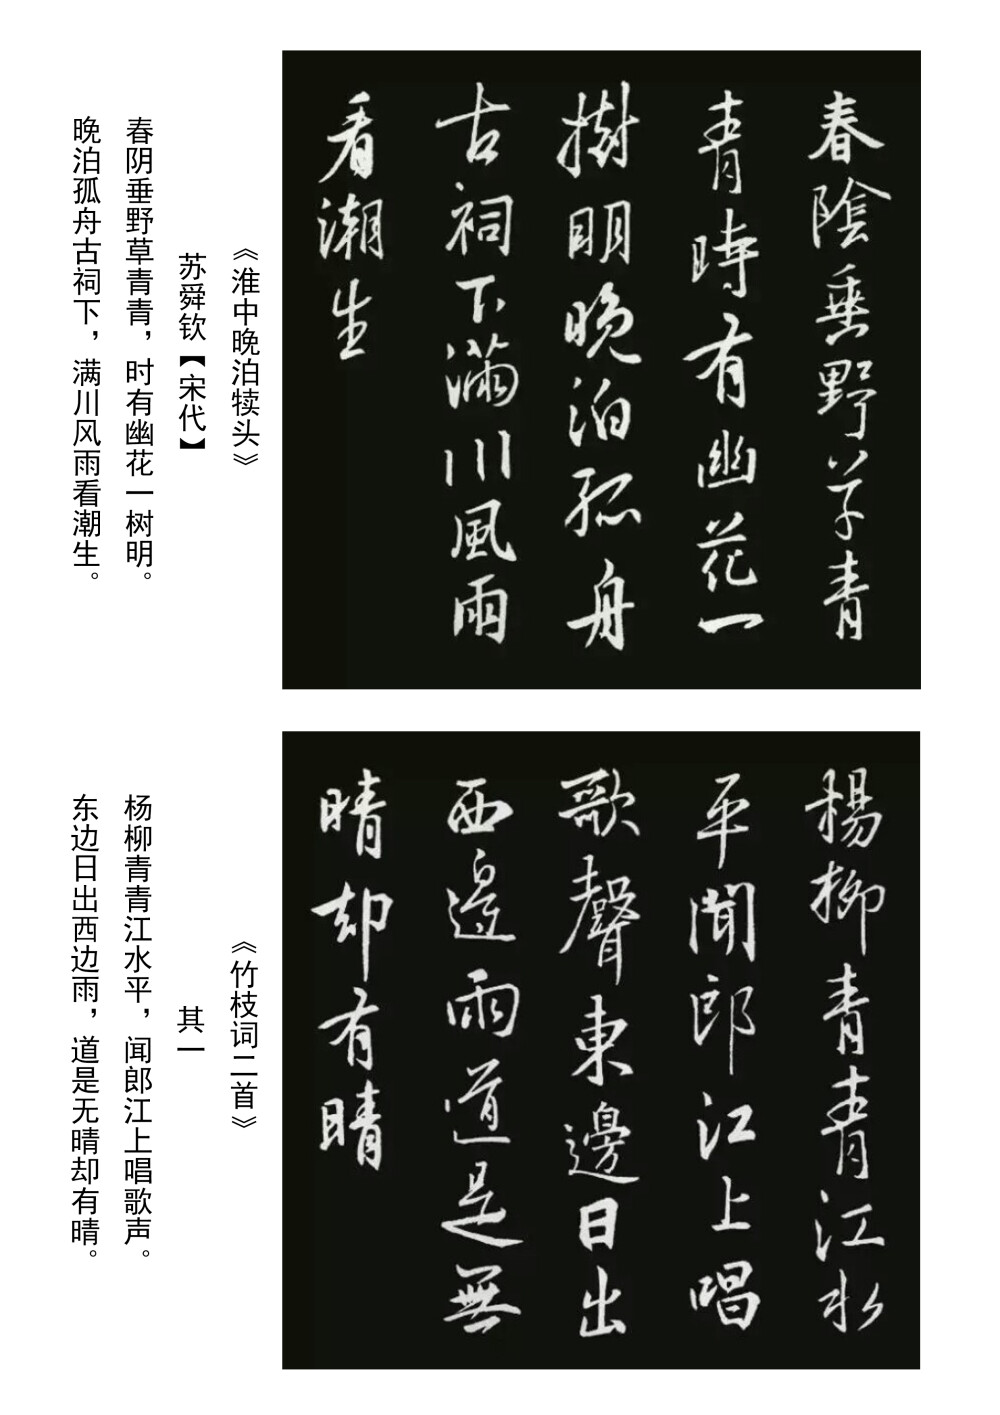 春陰垂野草青
青時有幽花一
樹明晚泊孤舟
古祠下滿川風雨
看潮生
《淮中晚泊犊头》
苏舜钦【宋代】
春阴垂野草青青，时有幽花一树明。
晚泊孤舟古祠下，满川风雨看潮生。
楊柳青青江水
平聞郎江上唱
歌聲東邊日出
西邊雨道是無
晴却有晴
《竹枝词二首》
其一
杨柳青青江水平，闻郎江上唱歌声。
东边日出西边雨，道是无晴却有晴。